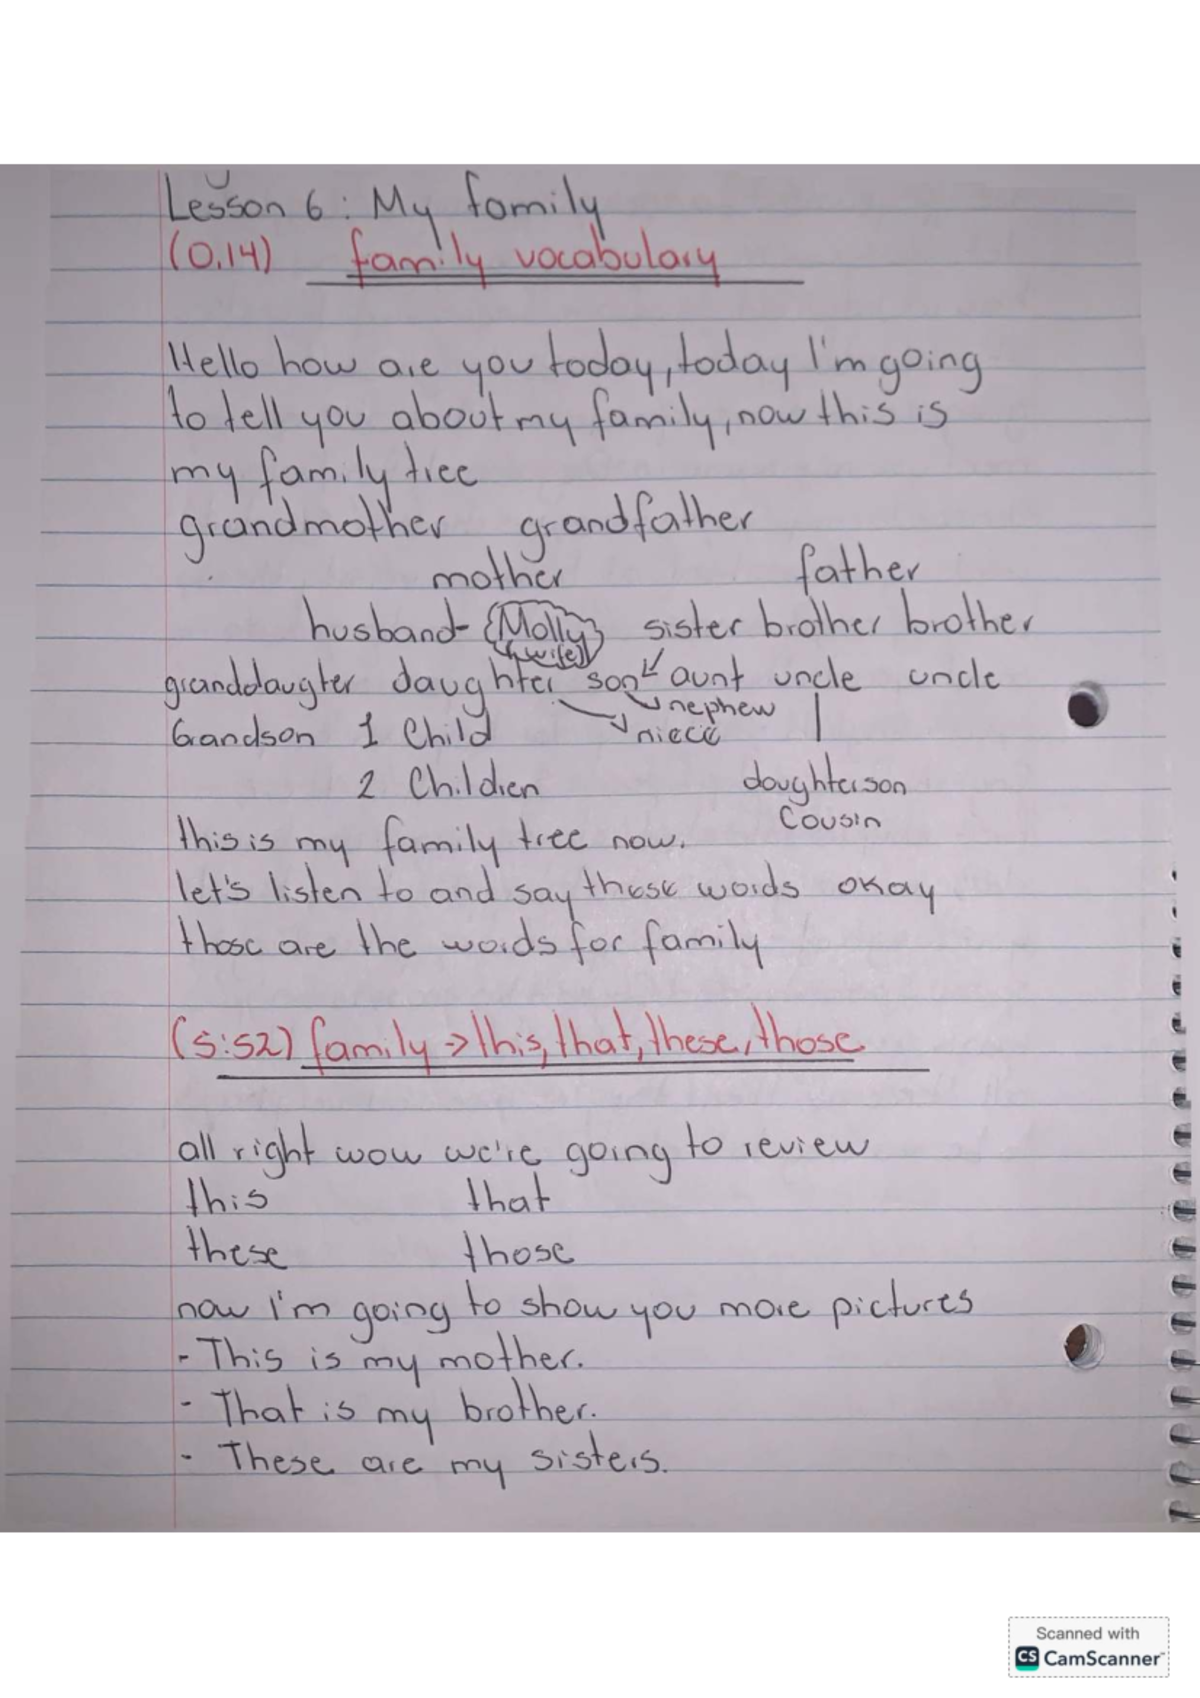 Lesson 6: My family
(0.14) family vocabulary
Hello how are you today, today I'm going
to tell you about my family, now this is
my family tree
grandmother grandfather
mother father
husband- Molly sister brother brother
(wife)
granddaugter daughter son aunt uncle uncle
nephew
Grandson 1 Child niece
2 Children daughter son
Cousin
this is my family tree now.
let's listen to and say these words okay
those are the words for family
(5:52) family → this, that, these, those
all right wow we're going to review
this that
these those
now I'm going to show you more pictures
- This is my mother.
- That is my brother.
- These are my sisters.
Scanned with
CS CamScanner